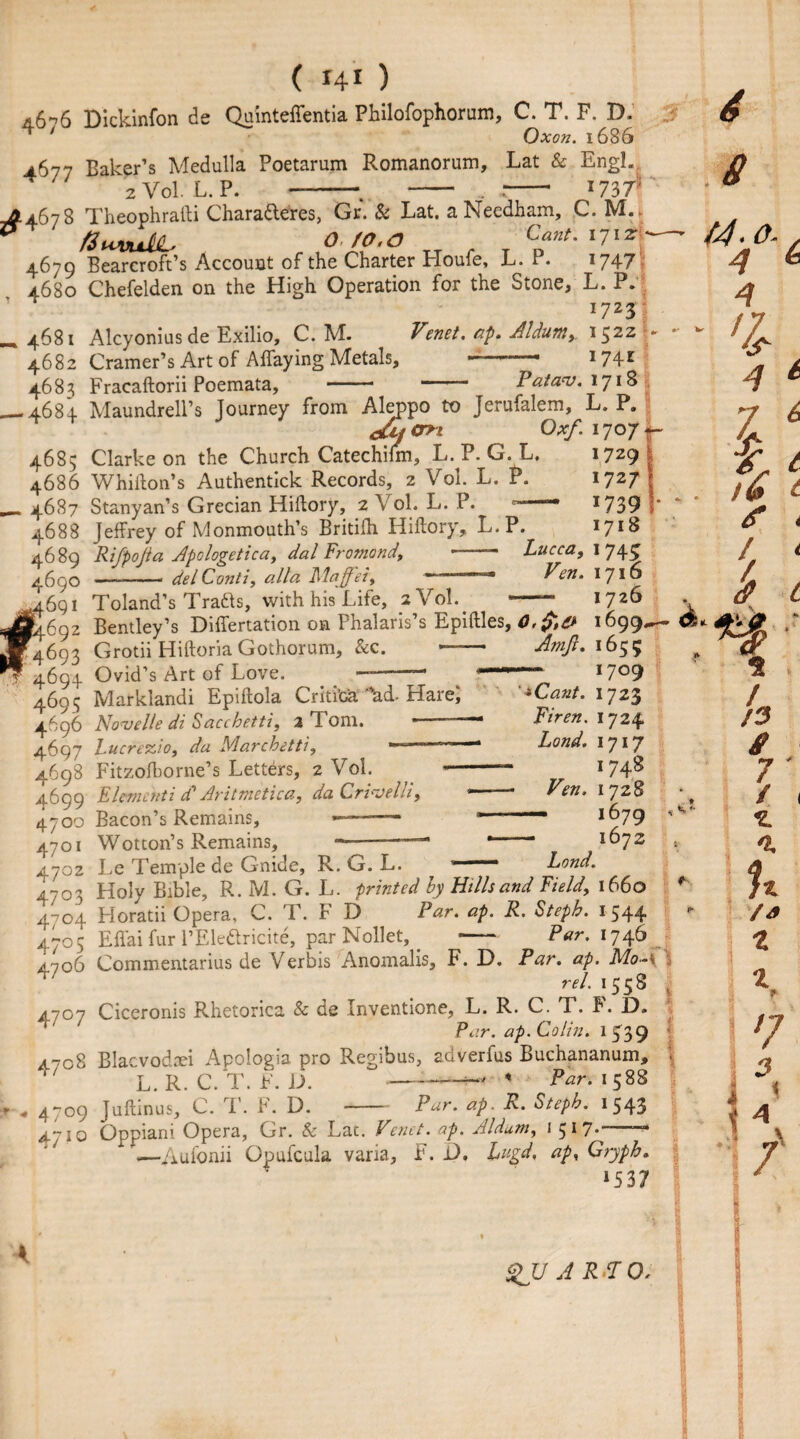 ( 141 )
4676 Dickinſon de Quinteſſentia Philoſophorum, C. T. F. D.
Oxon. 1686
4677 Baker's Medulla Poetarum Romanorum, Lat & Engl.
2 Vol. L. P. —— —— —— 1737
4678 Theophraſti Characteres, Gr. & Lat. a Needham, C. M.
0. 10. 0 Cant. 1712
4679 Bearcroft's Account of the Charter Houſe, L. P. 1747
4680 Cheſelden on the High Operation for the Stone, L. P.
1723
4681 Alcyonius de Exilio, C. M. Venet. ap. Aldum, 1522
4682 Cramer's Art of Aſſaying Metals, —— 1741
4683 Fracaſtorii Poemata, —— —— Patav. 1718
4684 Maundrell's Journey from Aleppo to Jeruſalem, L. P.
Oxf. 1707
4685 Clarke on the Church Catechiſm, L. P. G. L. 1729
4686 Whiſton's Authentick Records, 2 Vol. L. P. 1727
4687 Stanyan's Grecian Hiſtory, 2 Vol. L. P. —— 1739
4688 Jeffrey of Monmouth's Britiſh Hiſtory, L. P. 1718
4689 Riſpoſta Apologetica, dal Fromond, —— Lucca, 1745
4690 —— del Conti, alla Maffei, —— Ven. 1716
4691 Toland's Tracts, with his Life, 2 Vol. —— 1726
4692 Bentley's Diſſertation on Phalaris's Epiſtles, 1699
4693 Grotii Hiſtoria Gothorum, &c. —— Amſt. 1655
4694 Ovid's Art of Love. —— —— 1709
4695 Marklandi Epiſtola Critica ad. Hare, Cant. 1723
4696 Novelle di Sacchetti, 2 Tom. —— Firen. 1724
4697 Lucrezio, da Marchetti, —— Lond. 1717
4698 Fitzoſborne's Letters, 2 Vol. —— 1748
4699 Elementi d' Aritmetica, da Crivelli, —— Ven. 1728
4700 Bacon's Remains, —— —— 1679
4701 Wotton's Remains, —— —— 1672
4702 Le Temple de Gnide, R. G. L. —— Lond.
4703 Holy Bible, R. M. G. L. printed by Hills and Field, 1660
4704 Horatii Opera, C. T. F D Par. ap. R. Steph. 1544
4705 Eſſai ſur l'Electricité, par Nollet, —— Par. 1746
4706 Commentarius de Verbis Anomalis, F. D. Par. ap. Mo-
rel. 1558
4707 Ciceronis Rhetorica & de Inventione, L. R. C. T. F. D.
Par. ap. Colin. 1539
4708 Blacvodæi Apologia pro Regibus, adverſus Buchananum,
L. R. C. T. F. D. —— Par. 1588
4709 Juſtinus, C. T. F. D. —— Par. ap. R. Steph. 1543
4710 Oppiani Opera, Gr. & Lat. Venet. ap. Aldum, 1517.——
—Auſonii Opuſcula varia, F. D. Lugd. ap. Gryph.
1537
QUARTO.